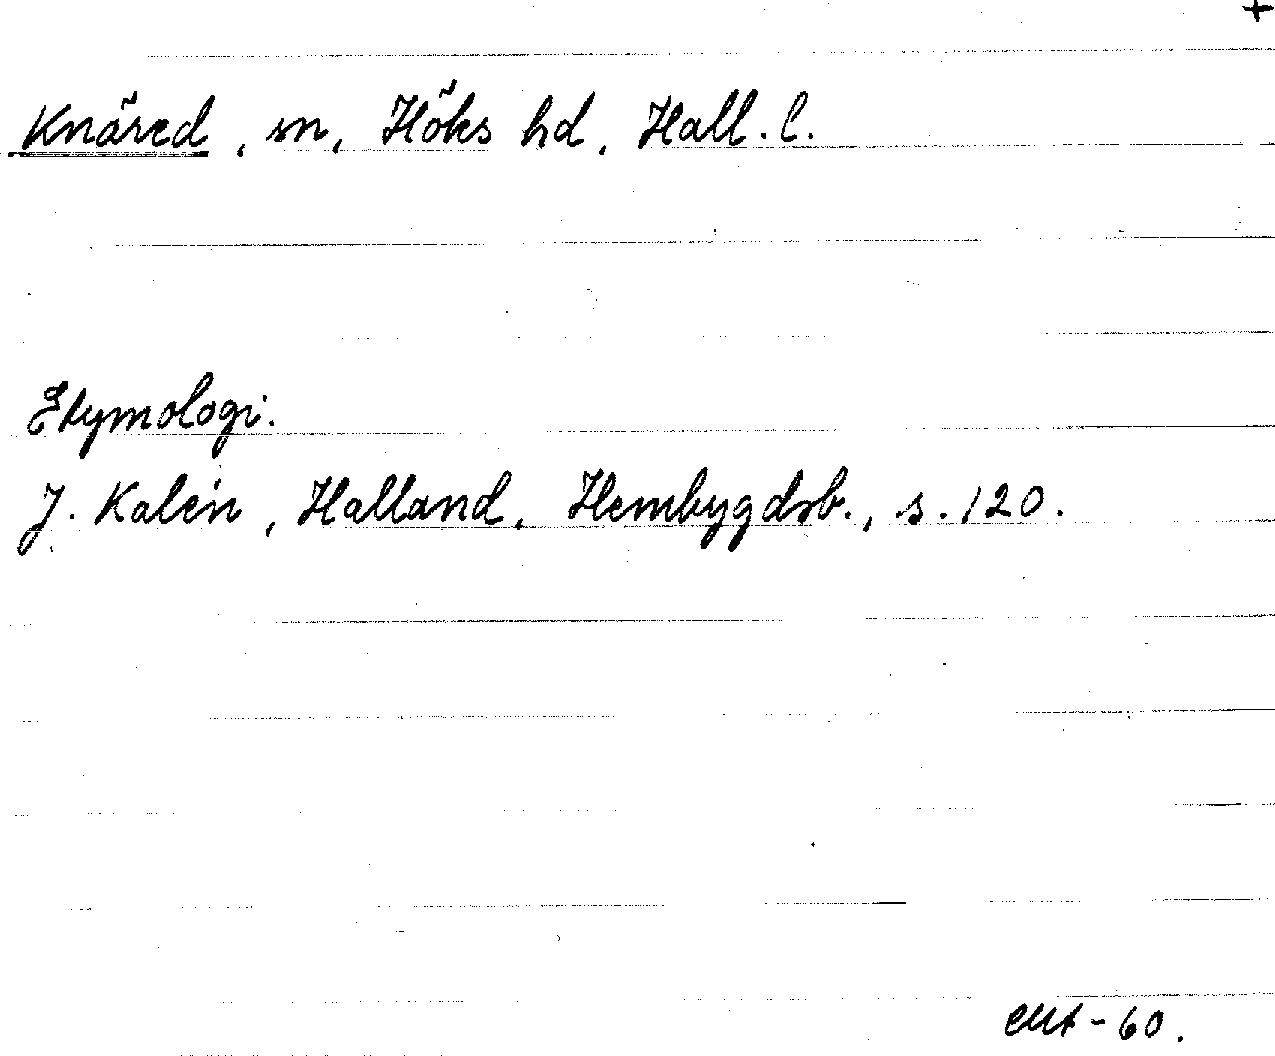 +
Knäred, sn, Höks hd, Hall. l.
Etymologi.
J. Kalén, Halland, Hembygdsb., s. 120.
-60.